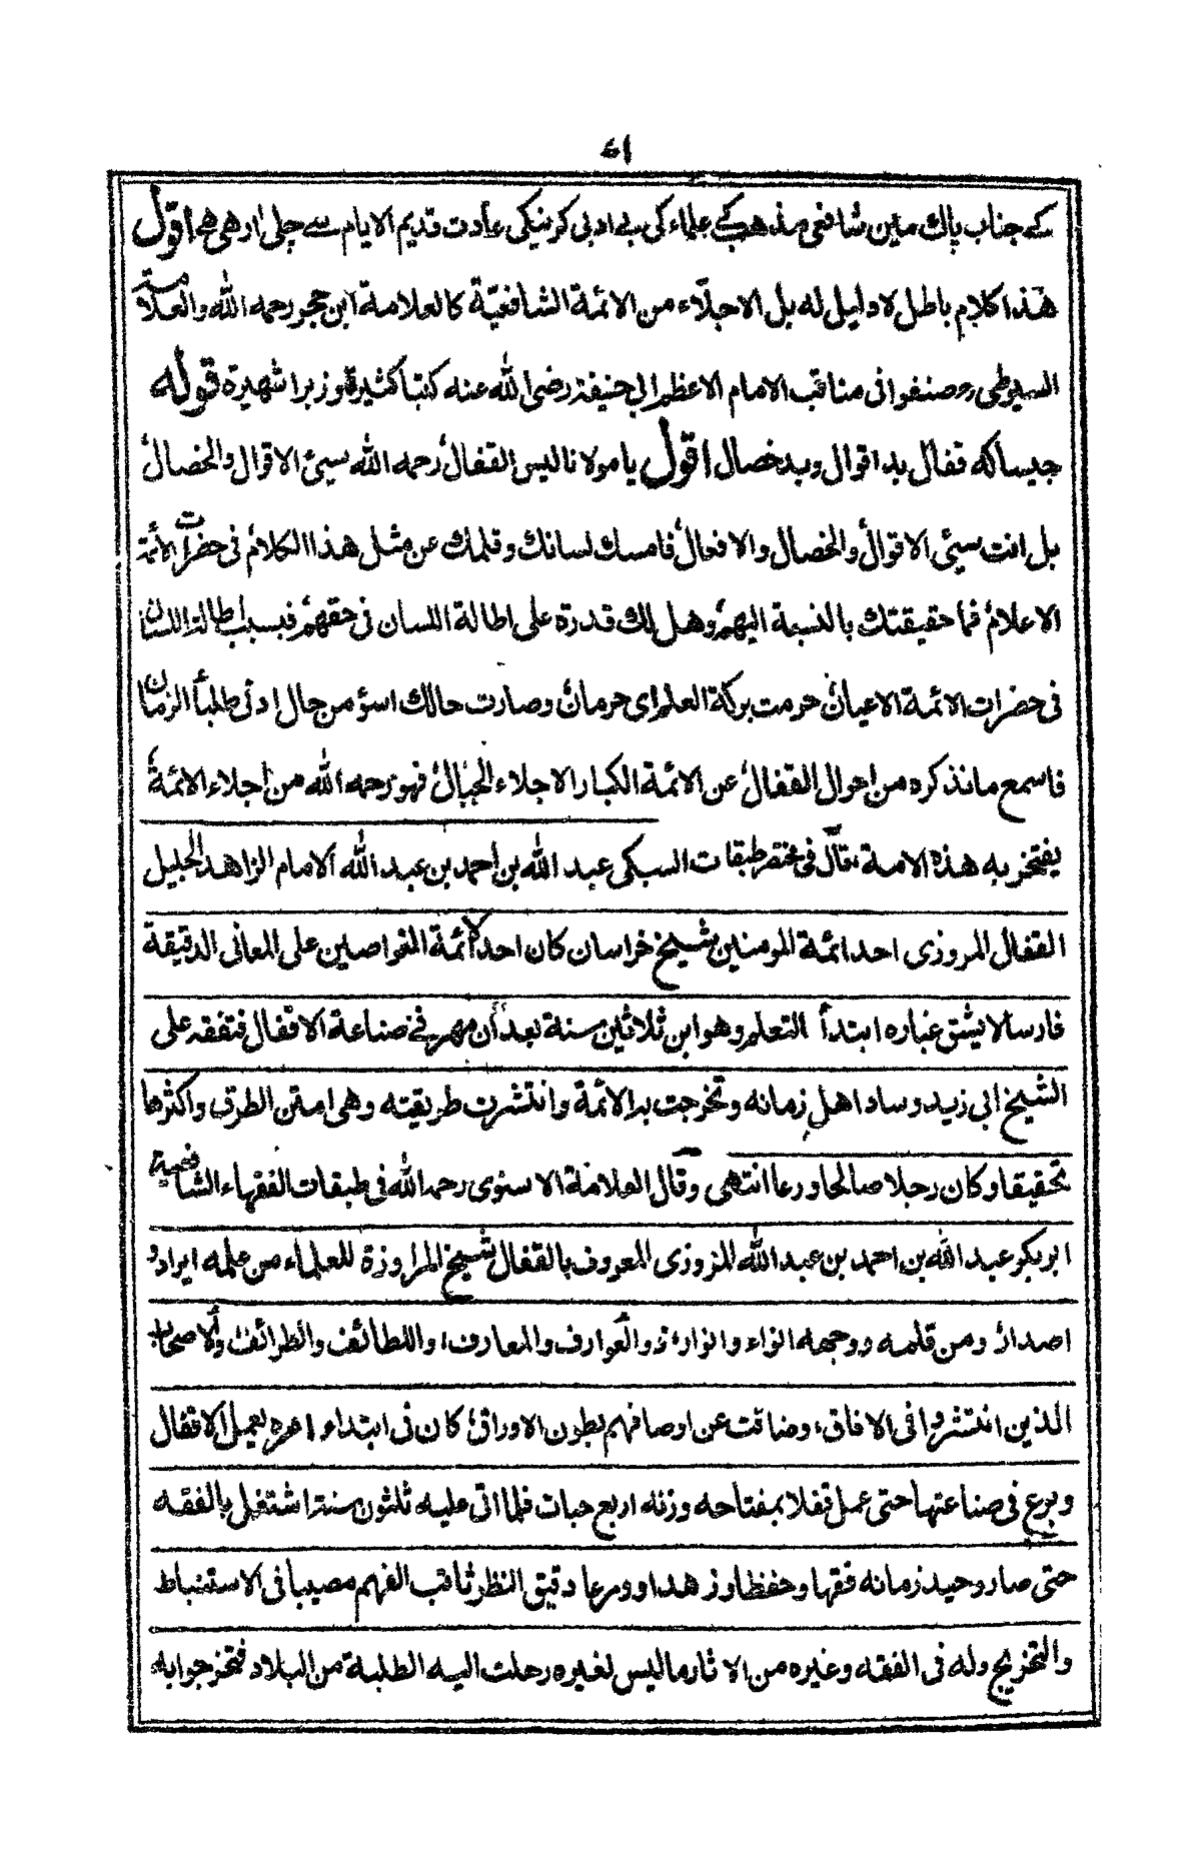 ٤١
کے جناب پاك مین شافعی مذهبکے علماء کی بے ادبی کرنیکی عادت قدیم الایام سے چلی ارهی هے اقول
هذا كلام باطل لا دليل له بل الاجلّاء من الائمة الشافعيّة كالعلامة ابن حجر رحمه الله والعلامة
السيوطى رح صنفوا فى مناقب الامام الاعظم ابي حنيفة رضى الله عنه كتبا كثيرة وزبرا شهيرة قوله
جیساکه قفال بد اقوال وبد خصال اقول يا مولانا ليس القفال رحمه الله سيئ الاقوال والخصال
بل انت سيئ الاقوال والخصال والافعال فامسك لسانك وقلمك عن مثل هذا الكلام فى حضرات الائمة
الاعلام فما حقيقتك بالنسبة اليهم وهل لك قدرة على اطالة اللسان فى حقهم فبسبب اطالة اللسان
فى حضرات الائمة الاعيان حرمت بركة العلم اى حرمان وصارت حالك اسؤ من حال ادنى طلبة الزمان
فاسمع ما نذكره من احوال القفال عن الائمة الكبار الاجلاء الجبال فهو رحمه الله من اجلاء الائمة
يفتخر به هذه الامة قال فى مختصر طبقات السبكى عبد الله بن احمد بن عبد الله الامام الزاهد الجليل
القفال المروزى احد ائمة المومنين شيخ خراسان كان احد الائمة الغواصين على المعانى الدقيقة
فارسا لا يشق غباره ابتدأ التعلم وهو ابن ثلاثين سنة بعد أن مهر فى صناعة الاقفال فتفقه على
الشيخ ابى زيد وساد اهل زمانه وتخرجت به الائمة وانتشرت طريقته وهى امتن الطرق واكثرها
تحقيقا وكان رجلا صالحا ورعا انتهى وقال العلامة الاسنوى رحمه الله فى طبقات الفقهاء الشافعية
ابو بكر عبد الله بن احمد بن عبد الله المروزى المعروف بالقفال شيخ المراوزة للعلماء من علمه ايراد و
اصدار ومن قلمه ووجهه انواء وانوار ذو العوارف والمعارف، واللطائف والظرائف والاصحاب
الذين انتشروا فى الافاق، وضاقت عن اوصافهم بطون الاوراق، كان فى ابتداء امره يعمل الاقفال
وبرع فى صناعتها حتى عمل قفلا بمفتاحه وزنه اربع حبات فلما اتى عليه ثلثون سنة اشتغل بالفقه
حتى صار وحيد زمانه فقها وحفظا وزهدا وورعا دقيق النظر ثاقب الفهم مصيبا فى الاستنباط
والتخريج وله فى الفقه وغيره من الاثار ما ليس لغيره رحلت اليه الطلبة من البلاد فتخرجوا به